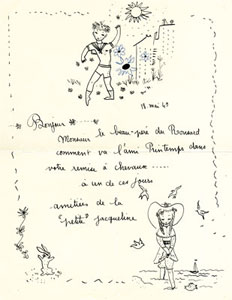 18. mai 60
Bonjour
Monsieur le beau-père du Renard
comment va l'ami Printemps dans
votre remise à chevaux .....
à un de ces jours
amitiés de la
"petite" Jacqueline